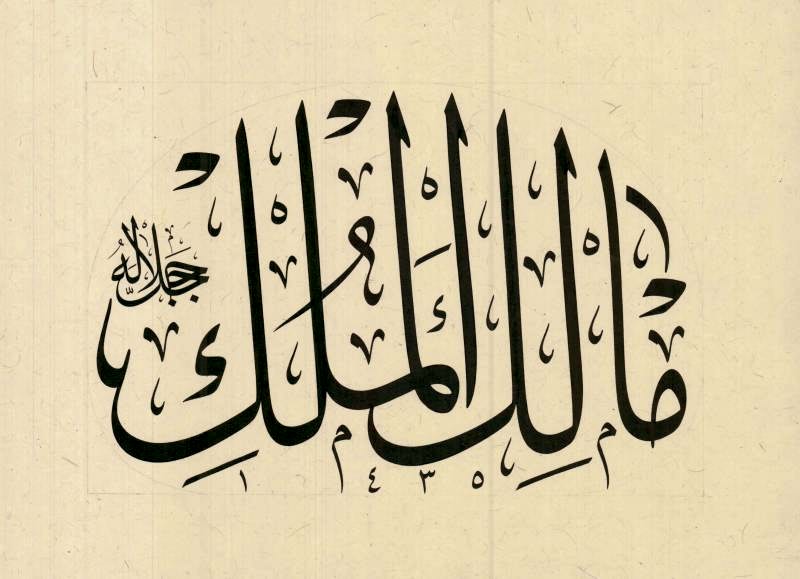 مَالِكِ الْمُلْكِ
جل جلاله
١٤٣٥